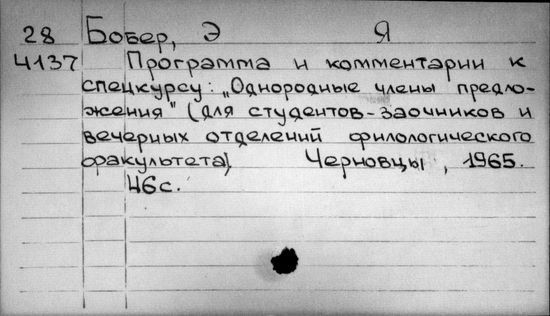 28 Бобер, Э Я
4137 Программа и комментарии к
спецкурсу: „Однородные члены предло-
жения" (для студентов-заочников и
вечерных отделений филологического
факультета) Черновцы, 1965.
46с.